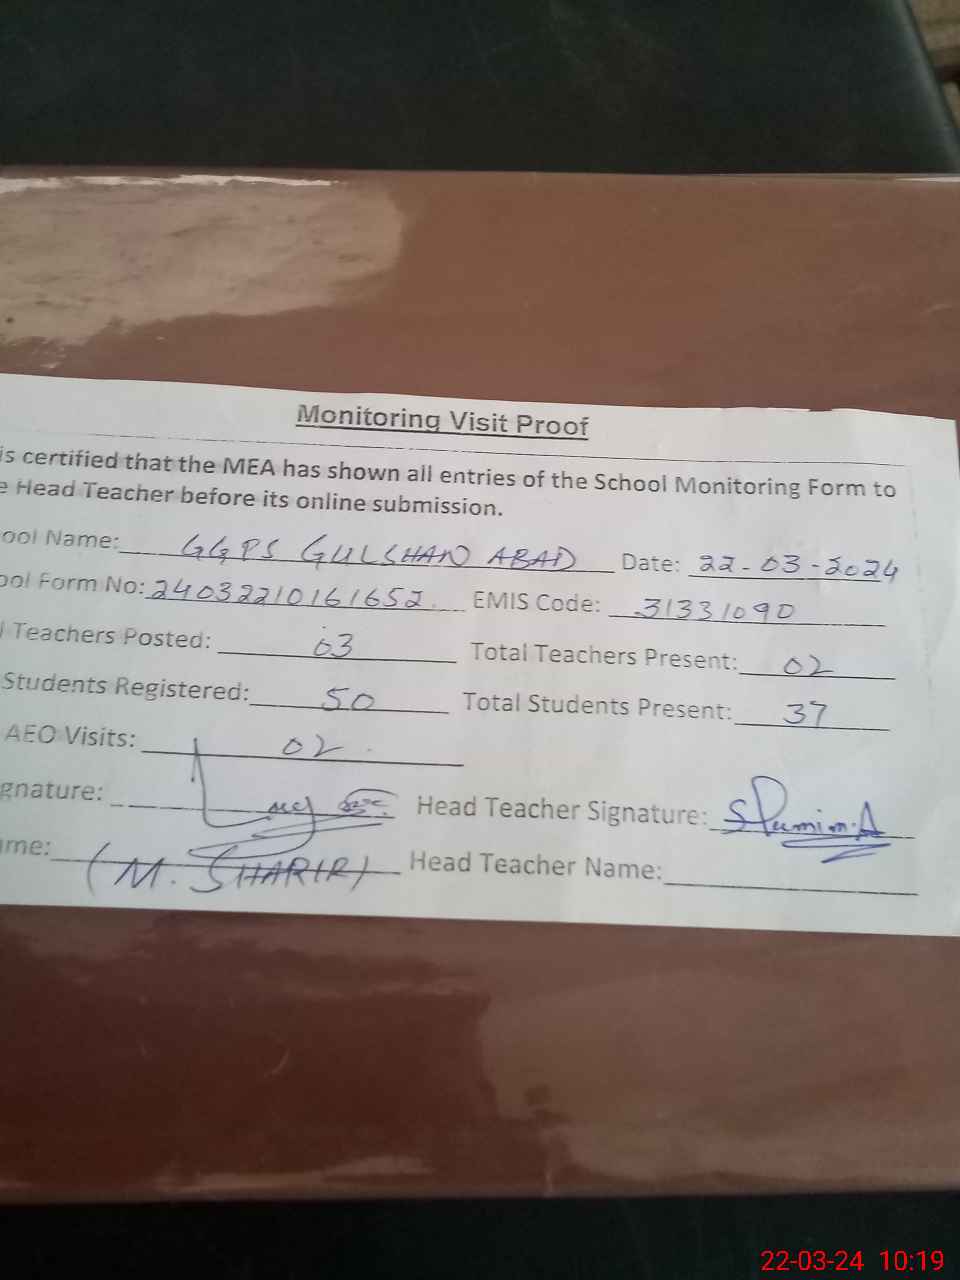 Monitoring Visit Proof
is certified that the MEA has shown all entries of the School Monitoring Form to
e Head Teacher before its online submission.
ool Name: GGPS GULSHAN ABAD Date: 22-03-2024
ool Form No: 24032210161652. EMIS Code: 31331090
l Teachers Posted: 03 Total Teachers Present: 02
Students Registered: 50 Total Students Present: 37
AEO Visits: 02
gnature: Head Teacher Signature:
me: (M. SHARIR) Head Teacher Name:
22-03-24 10:19